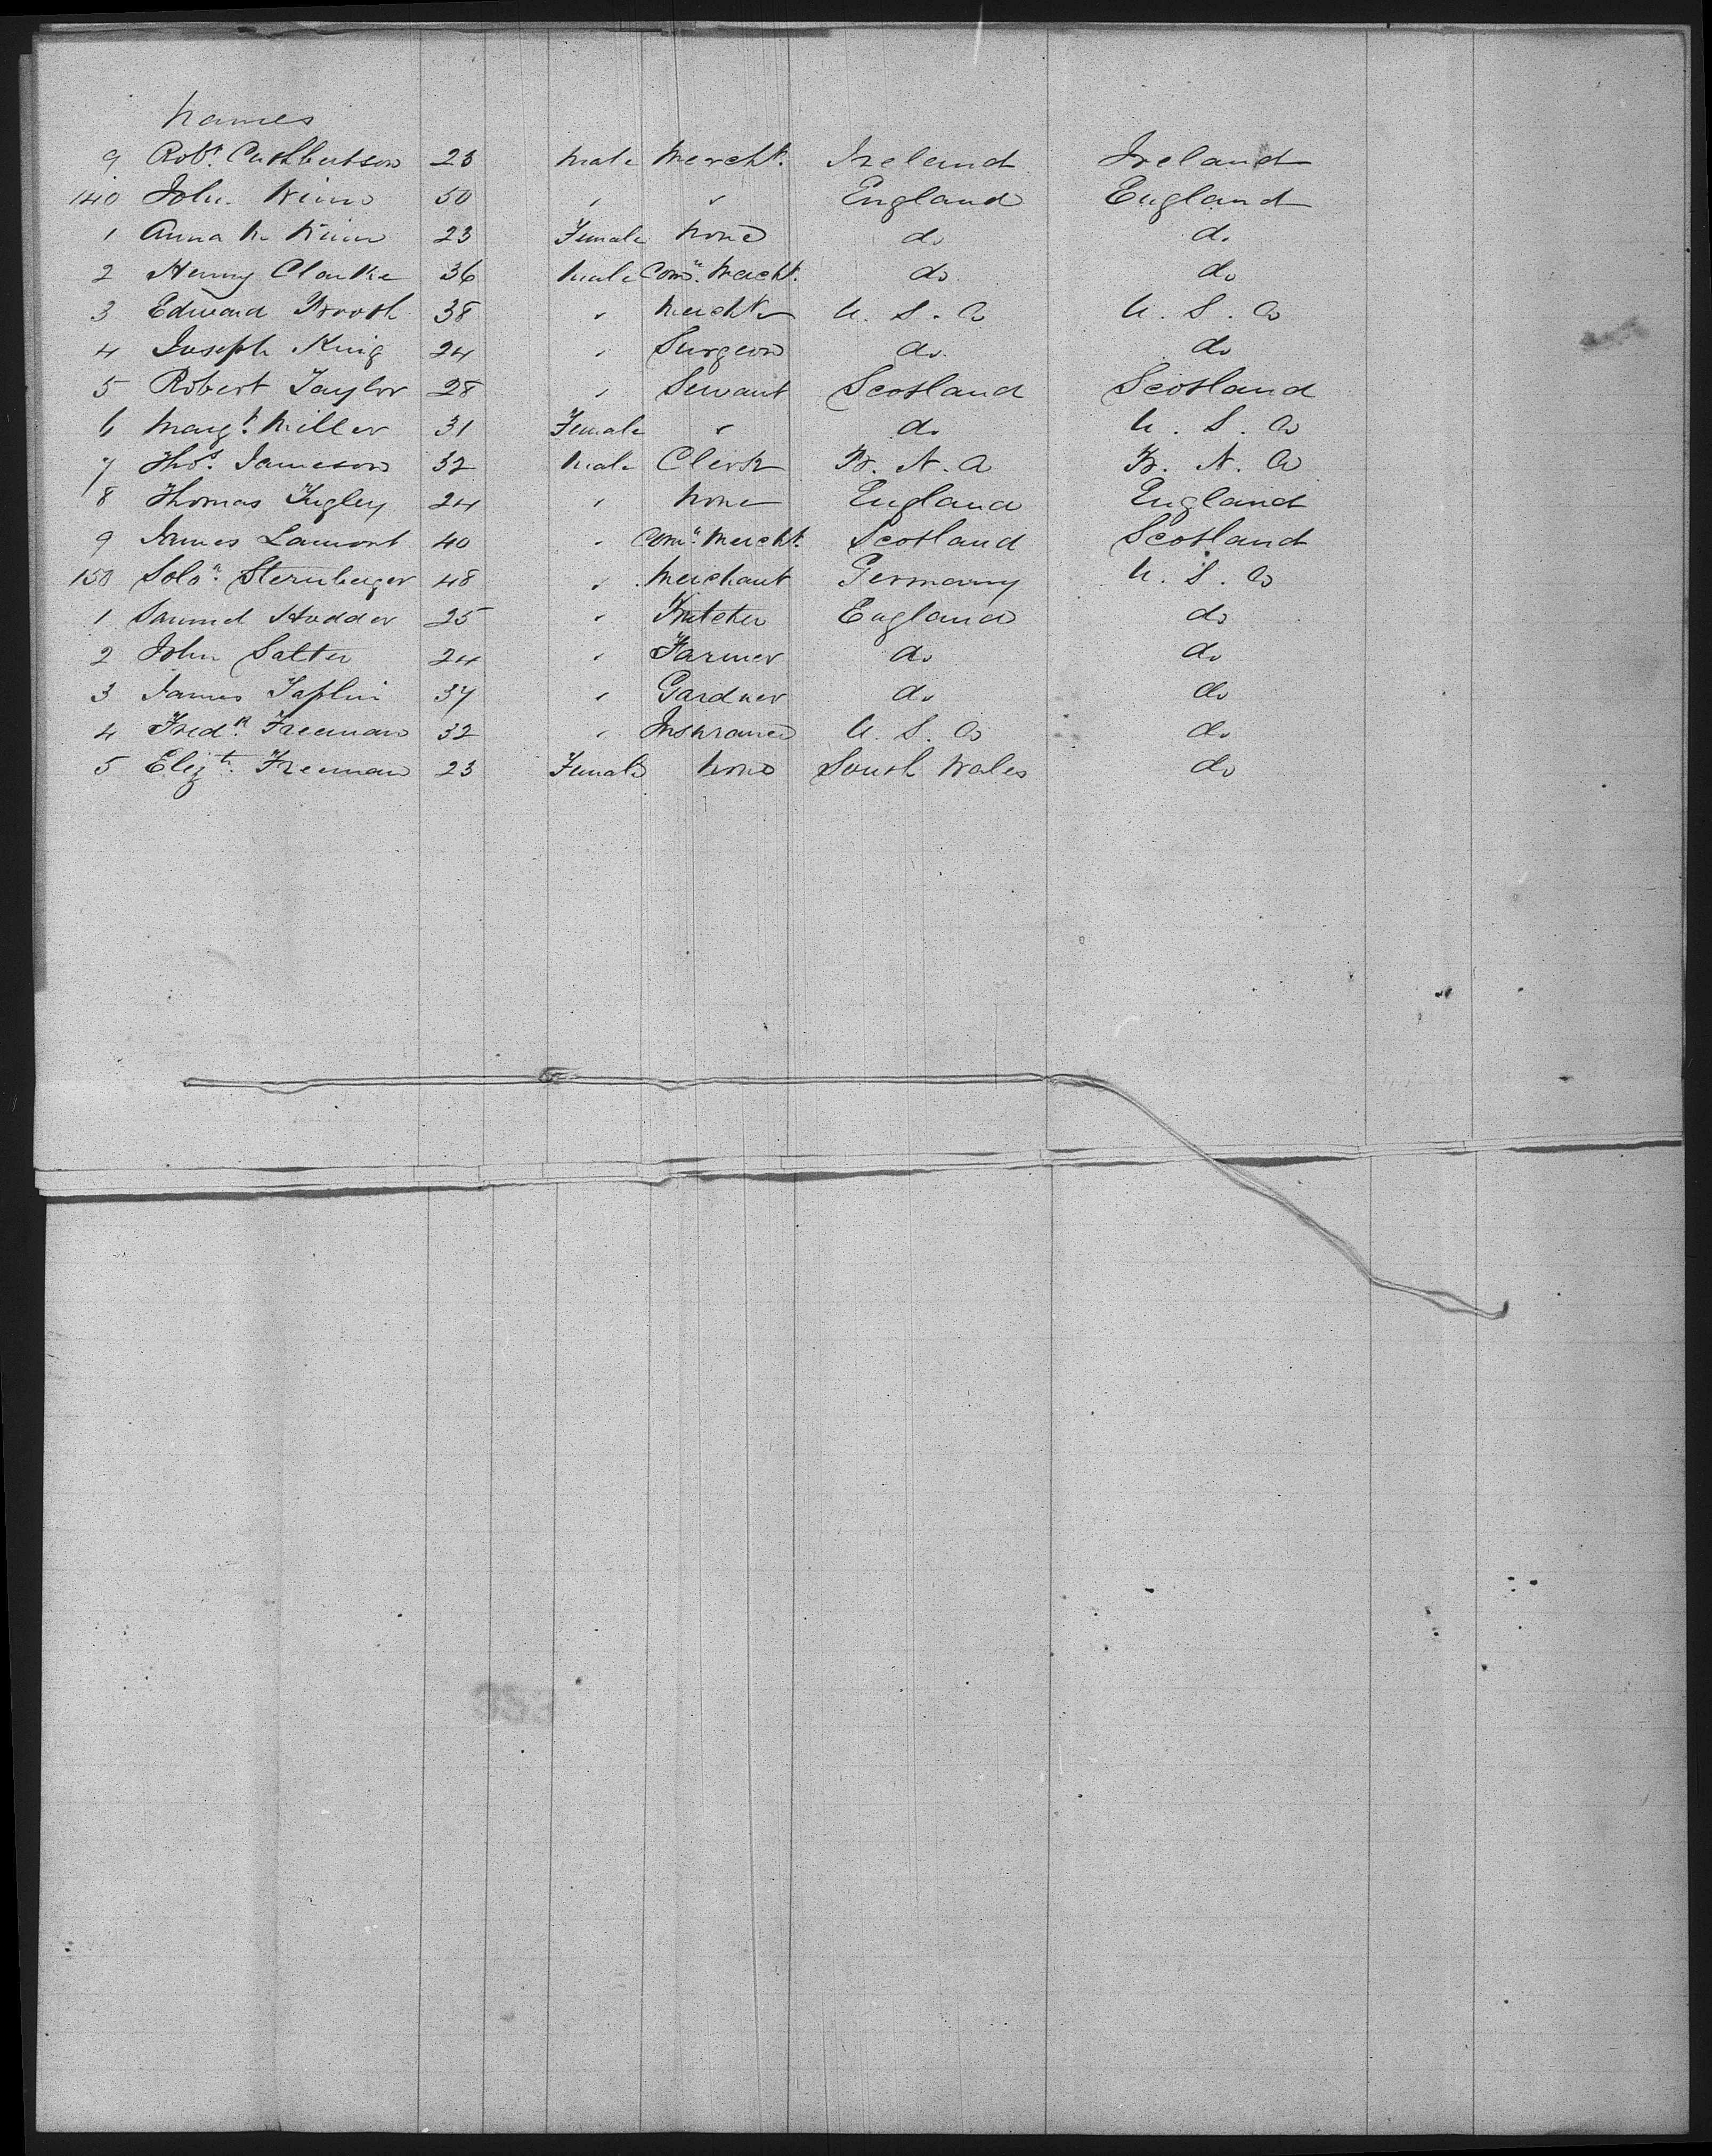 Names
9 Robt. Cuthbertson 23 Male Mercht. Ireland Ireland
140 John 50 " " England England
1 Anna M. 23 Female None do do
2 Henry Clarke 36 Male Comn. Mercht. do do
3 Edward Booth 38 " Mercht U. S. A U. S. A
4 Joseph King 24 " Surgeon do do
5 Robert Taylor 28 " Servant Scotland Scotland
6 Margt. Miller 31 Female " do U. S. A
7 Thos. Jameson 32 Male Clerk B. N. A B. N. A
8 Thomas 24 " None England England
9 James Lamont 40 " Comn. Mercht. Scotland Scotland
150 Solon. Sternberger 48 " Merchant Germany U. S. A
1 Samuel Hodder 25 " Butcher England do
2 John Salter 24 " Farmer do do
3 James Taplin 37 " Gardner do do
4 Fredk. Freeman 32 " Insurance U. S. A do
5 Elizth. Freeman 23 Female None South Wales do